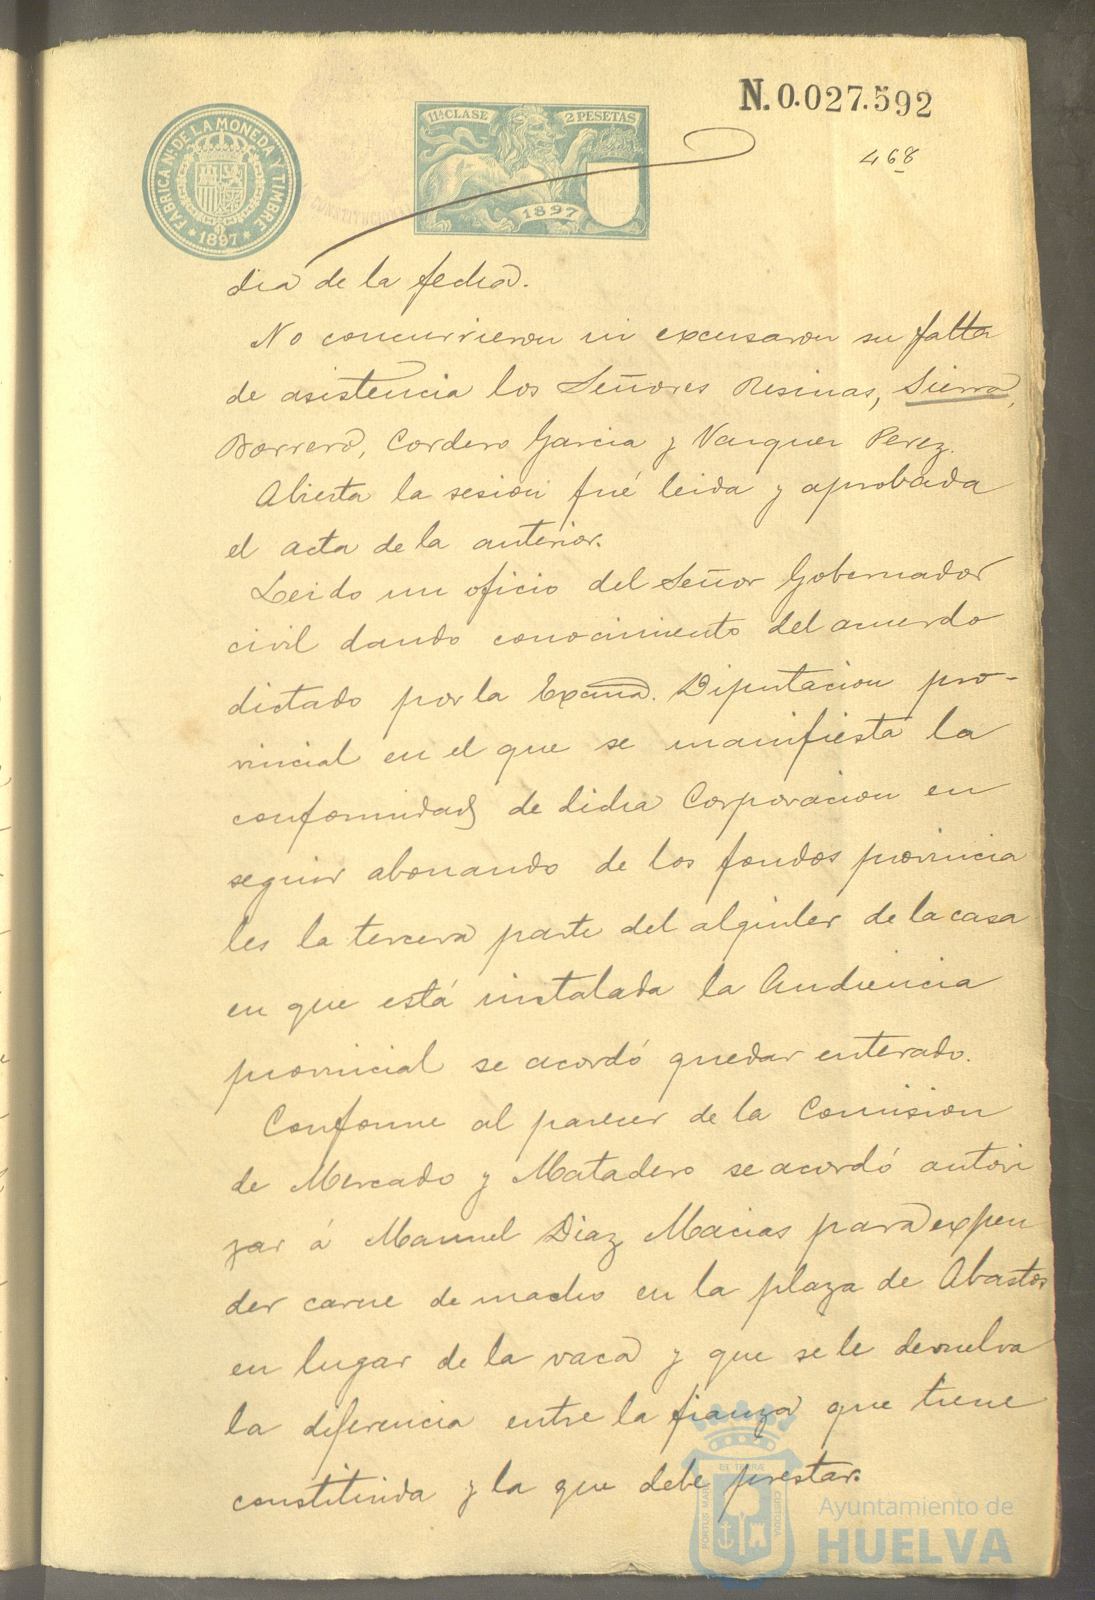 N. 0.027.592
468
FABRICA Nal. DE LA MONEDA Y TIMBRE
* 1897 *
11ª CLASE 2 PESETAS
1897
CONSTITUCIONAL
dia de la fecha.
No concurrieron ni excusaron su falta
de asistencia los Señores Resinas, Sierra,
Borrero, Cordero Garcia y Vazquez Perez.
Abierta la sesion fué leida y aprobada
el acta de la anterior.
Leido un oficio del Señor Gobernador
civil dando conocimiento del acuerdo
dictado por la Excma. Diputacion pro-
vincial en el que se manifiesta la
conformidad de dicha Corporacion en
seguir abonando de los fondos provincia
les la tercera parte del alquiler de la casa
en que está instalada la Audiencia
provincial se acordó quedar enterado.
Conforme al parecer de la Comision
de Mercado y Matadero se acordó autori
zar á Manuel Diaz Macias para expen
der carne de macho en la plaza de Abastos
en lugar de la vaca y que se le devuelva
la diferencia entre la fianza que tiene
constituida y la que debe prestar.
Ayuntamiento de
HUELVA
PORTUS MARIS ET TERRÆ CUSTODIA